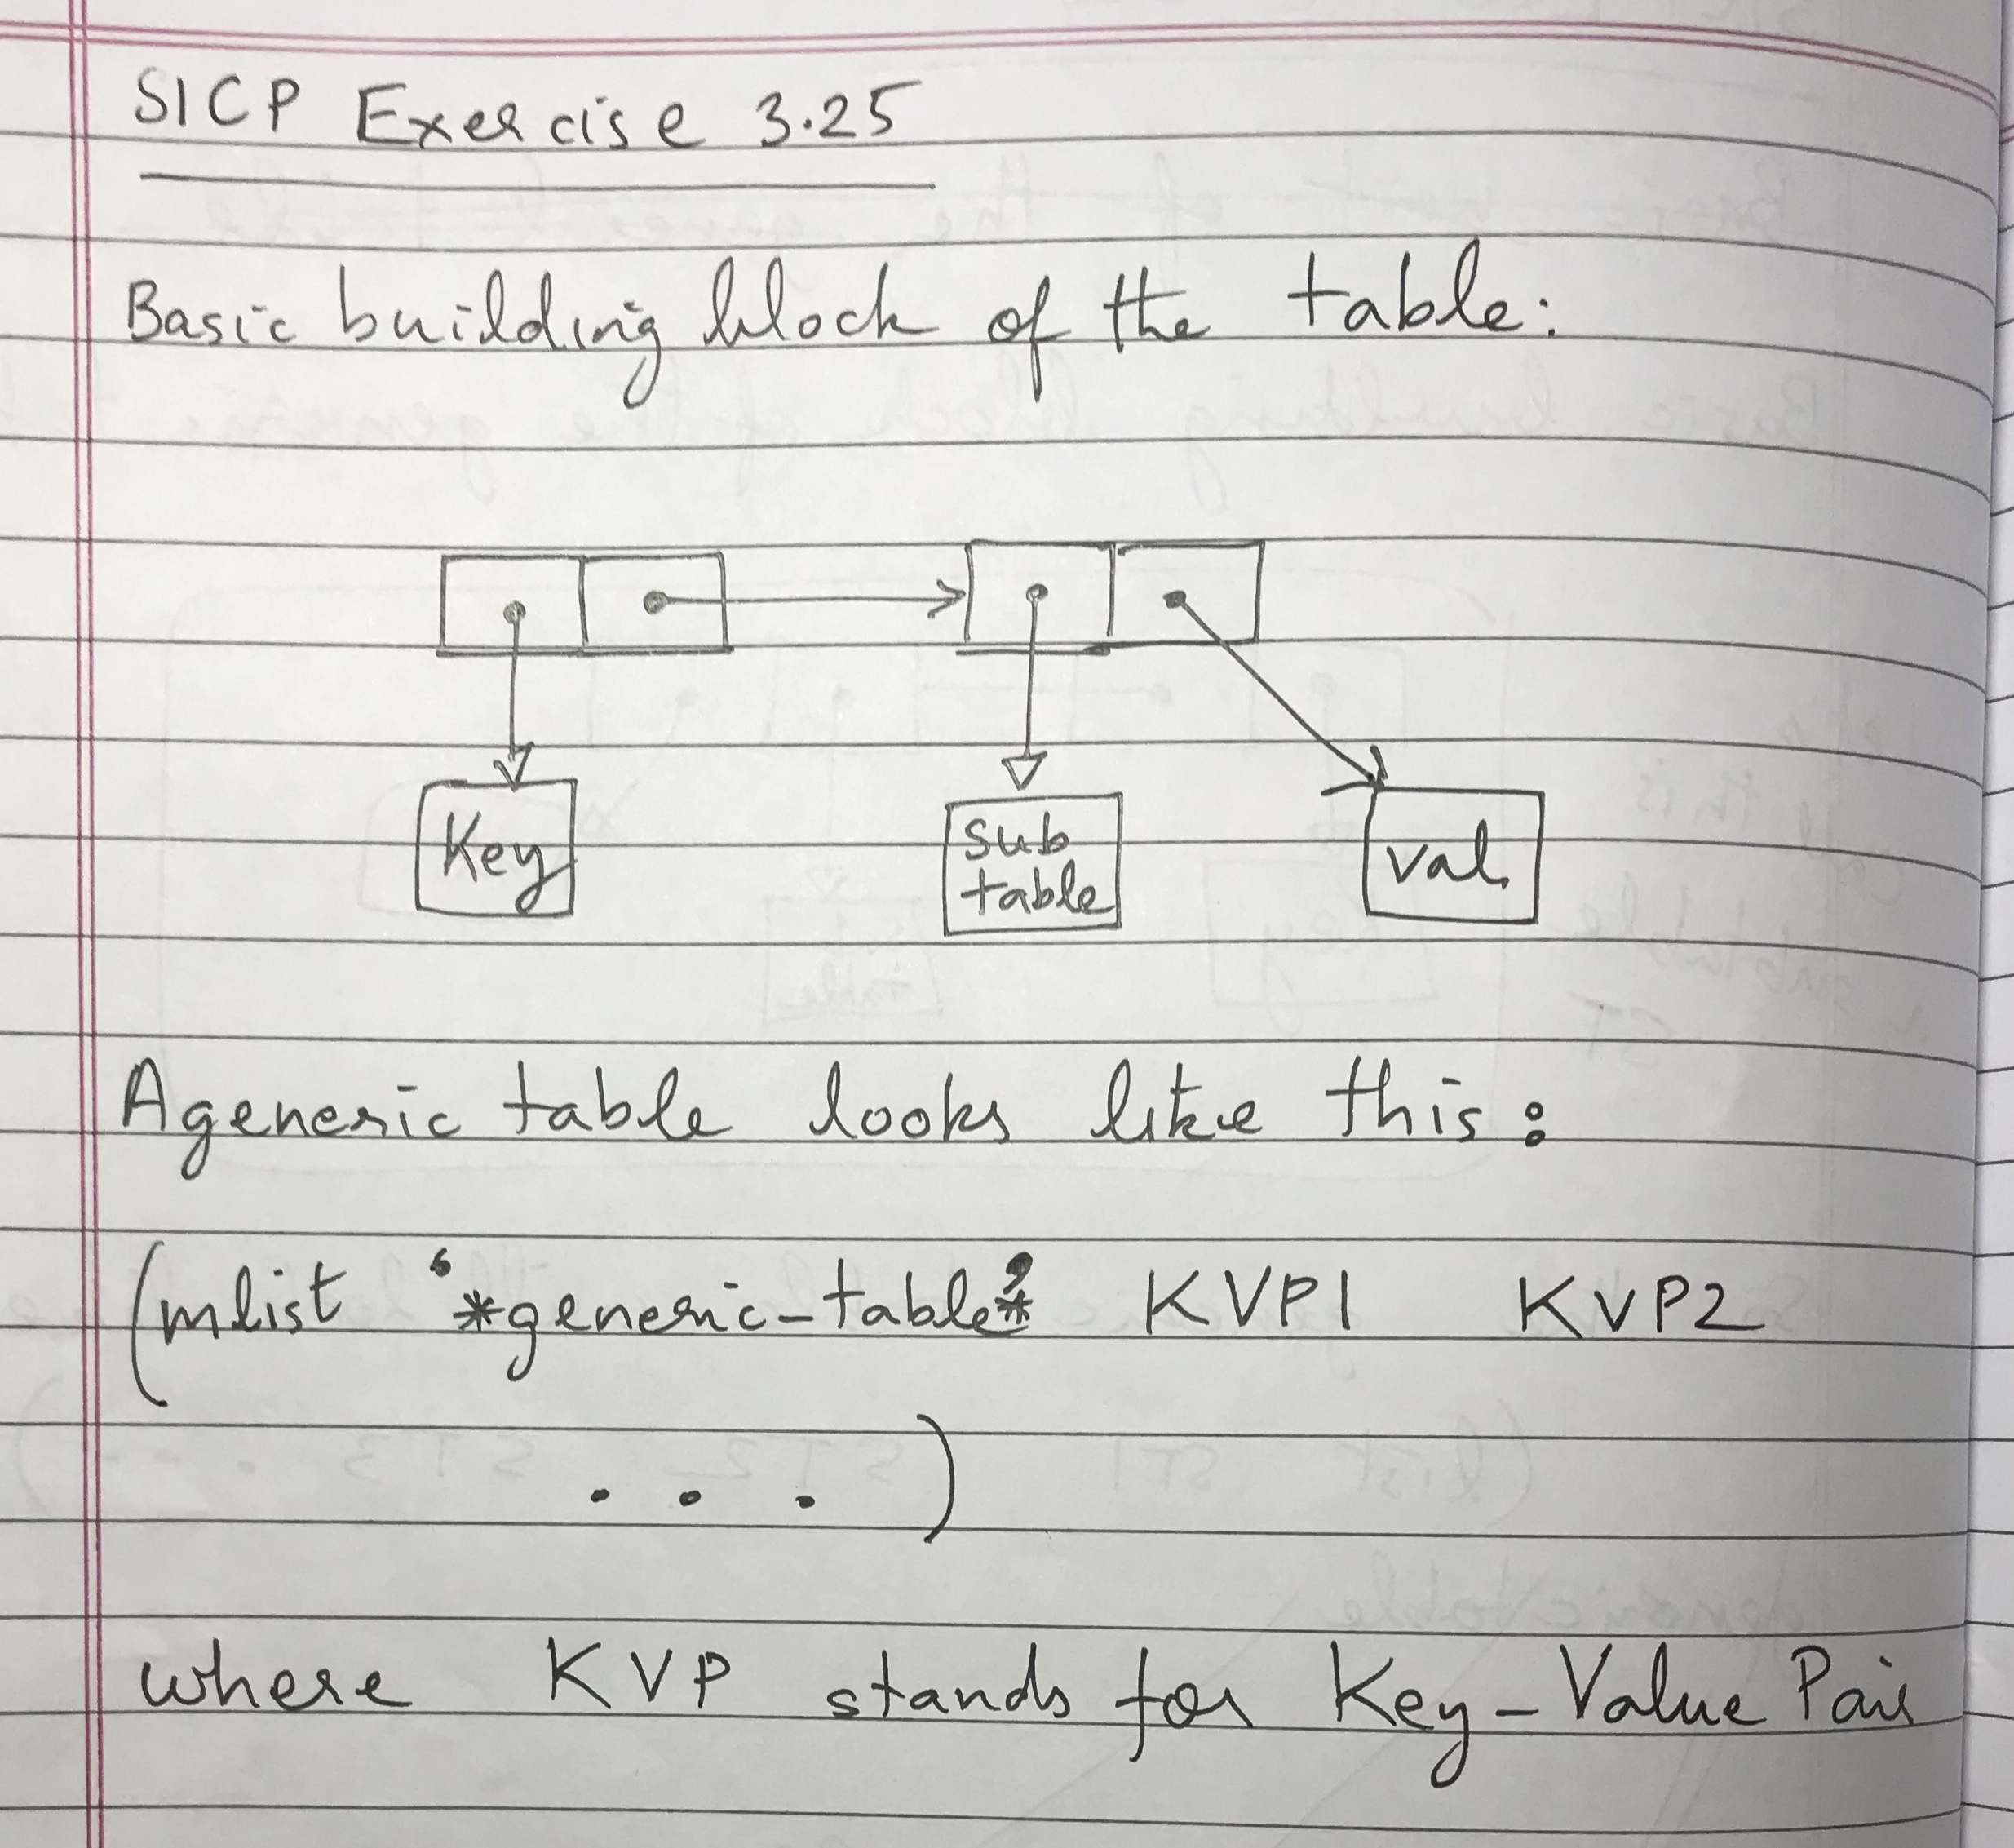 SICP Exercise 3.25
Basic building block of the table:
Key
sub
table
val
A generic table looks like this:
(mlist '*generic-table*' KVP1 KVP2
...)
where KVP stands for Key-Value Pair